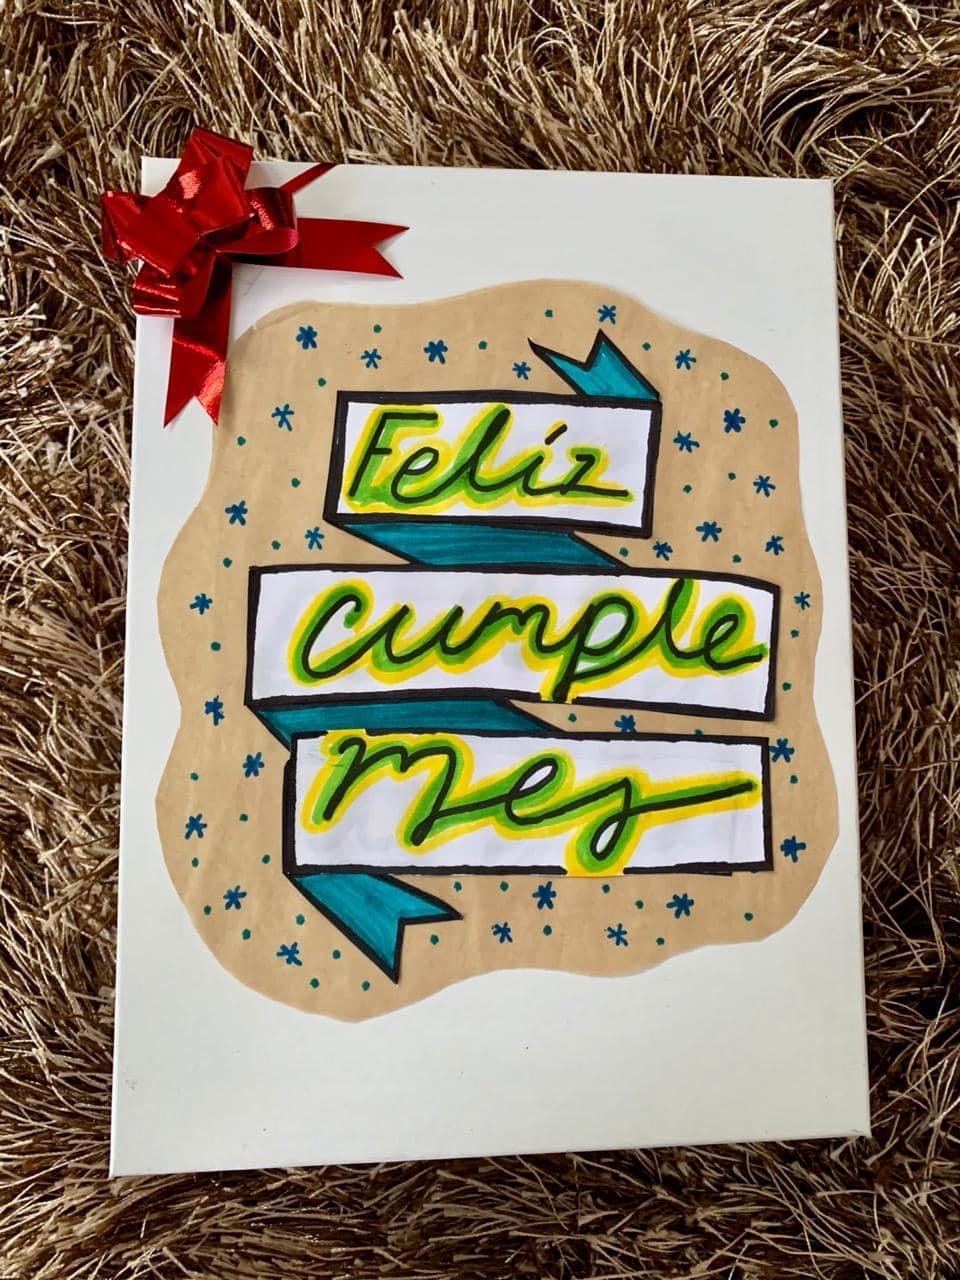 Feliz
cumple
Mes